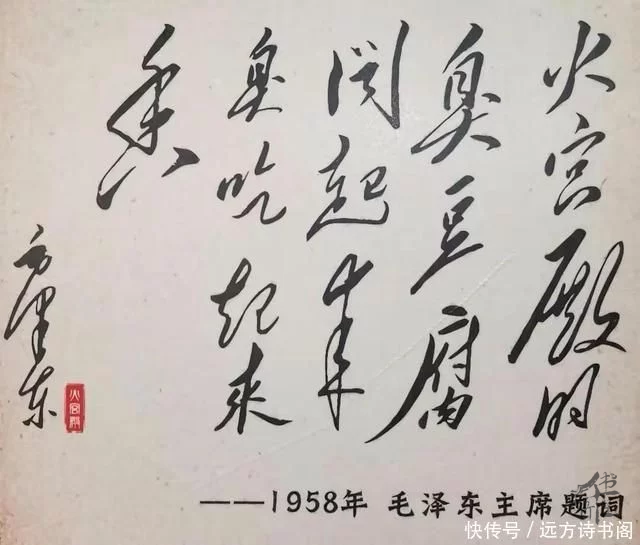 火宫殿的
臭豆腐
闻起来
臭吃起来
香
毛泽东
火宫殿
——1958年 毛泽东主席题词
快传号 / 远方诗书阁